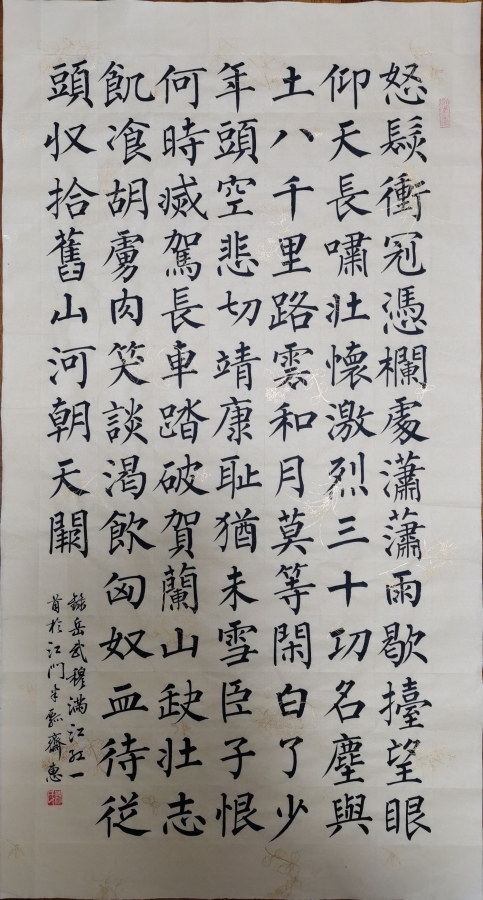 怒髮衝冠憑欄處瀟瀟雨歇擡望眼
仰天長嘯壯懷激烈三十功名塵與
土八千里路雲和月莫等閑白了少
年頭空悲切靖康恥猶未雪臣子恨
何時滅駕長車踏破賀蘭山缺壯志
飢飡胡虜肉笑談渴飲匈奴血待從
頭收拾舊山河朝天闕
錄岳武穆滿江紅一
首於江门半齋惠